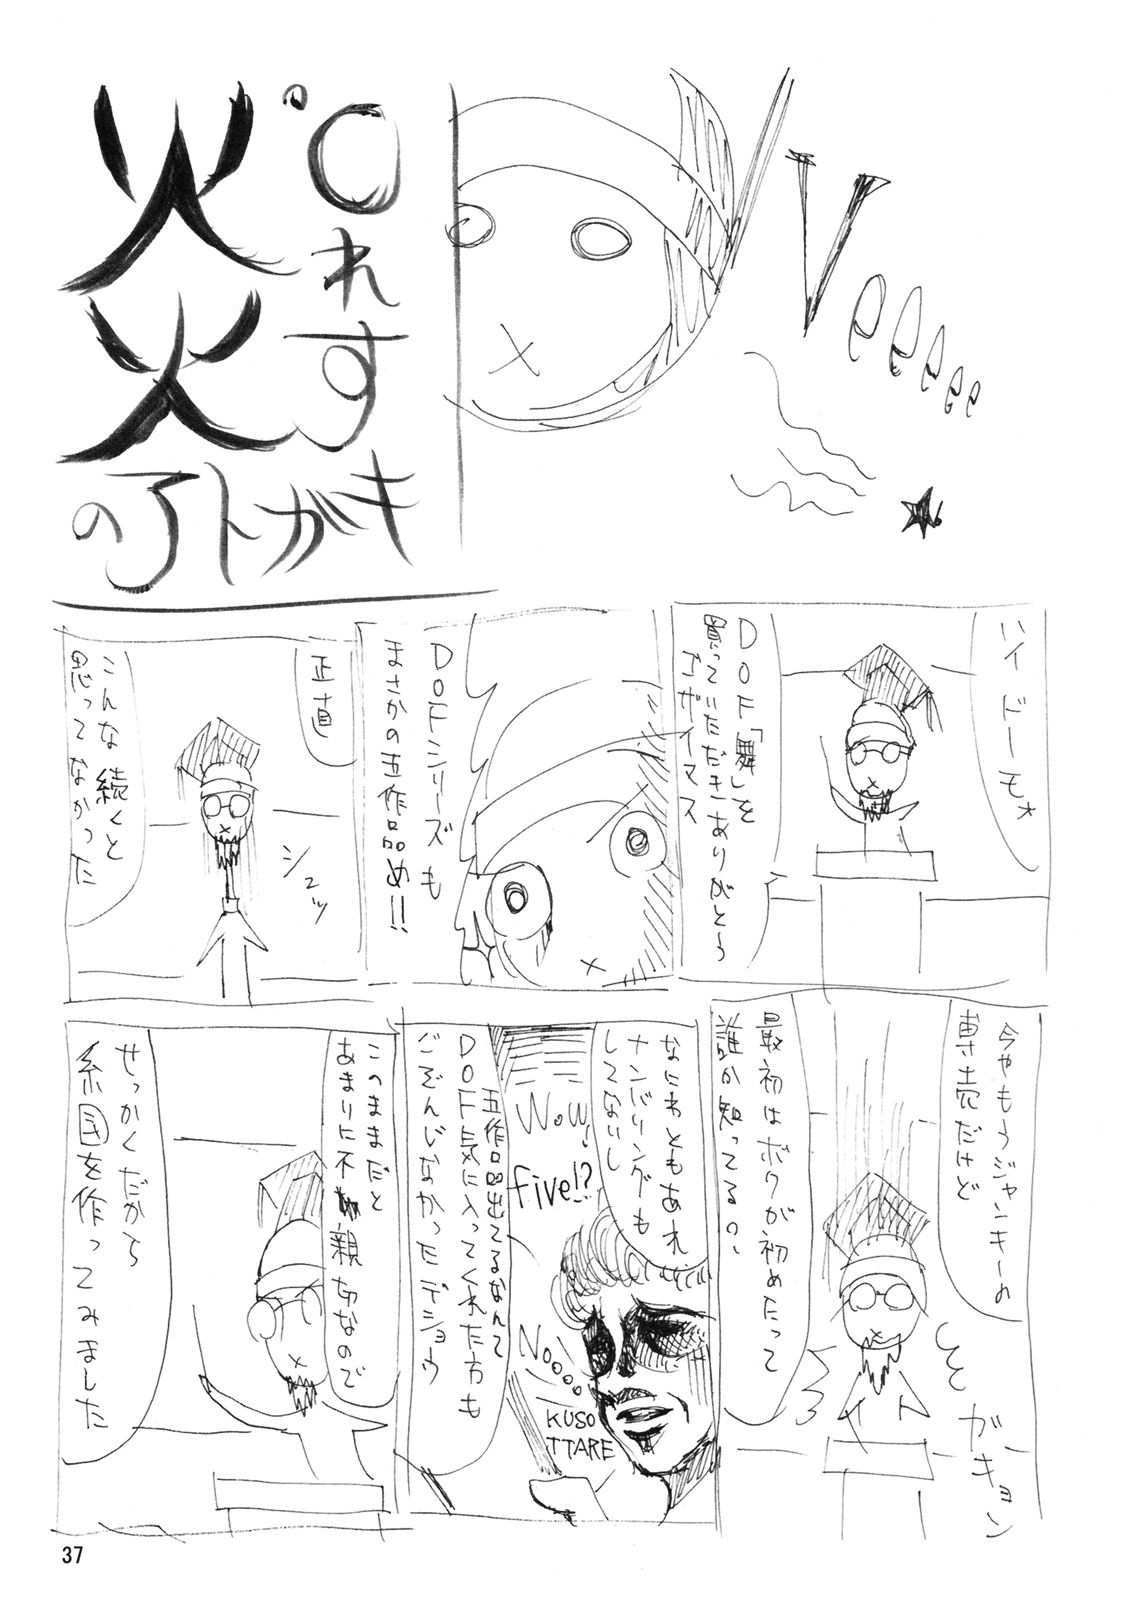 Veeeee
れす
火
火
のアトガキ
ハイドーモ★
DOF「舞」を
買っていただきありがとう
ゴザイマス
DOFシリーズも
まさかの五作品め!!
正直
こんな続くと
思ってなかった
シュッ
今やもうジャンキーの
専売だけど
最初はボクが初めたって
誰か知ってるの、
ガキョン
なにわともあれ
ナンバリングも
してないし
五作品出てるなんて
DOF気に入ってくれた方も
ごぞんじなかったデショウ
Wow!
five!?
Noooo
KUSO
TTARE
このままだと
あまりに不親切なので
せっかくだから
系図を作ってみました
37